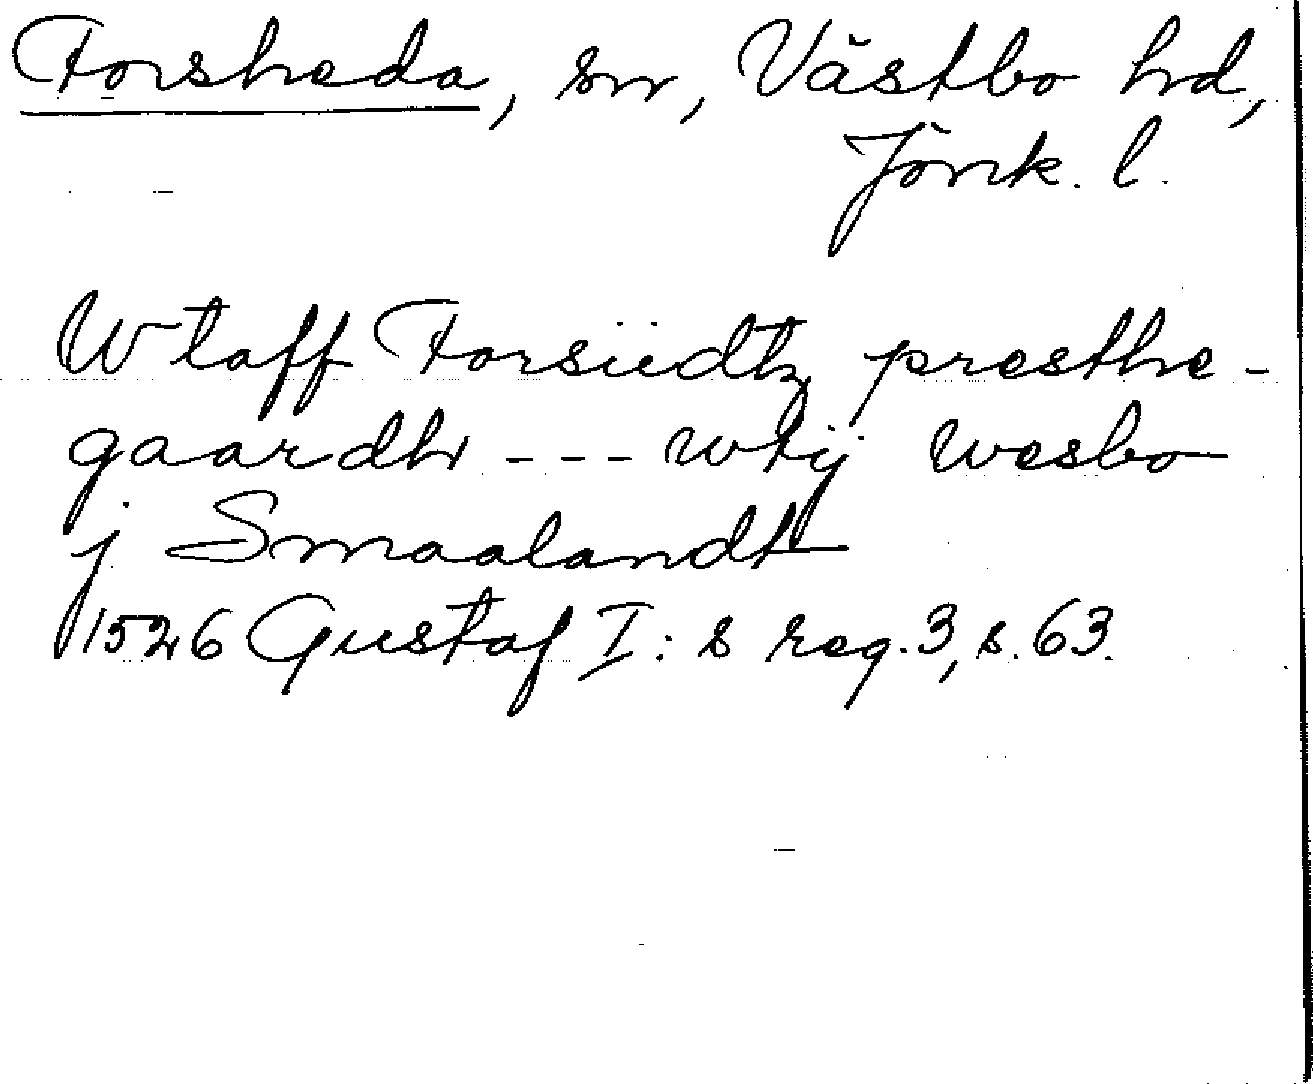 Forsheda, sn, Västbo hd,
Jönk. l.
Wtaff Forsiedtz presthe-
gaardh - - - wtÿ Wesbo
j Smaalandh
1526 Gustaf I: s reg. 3, s. 63.